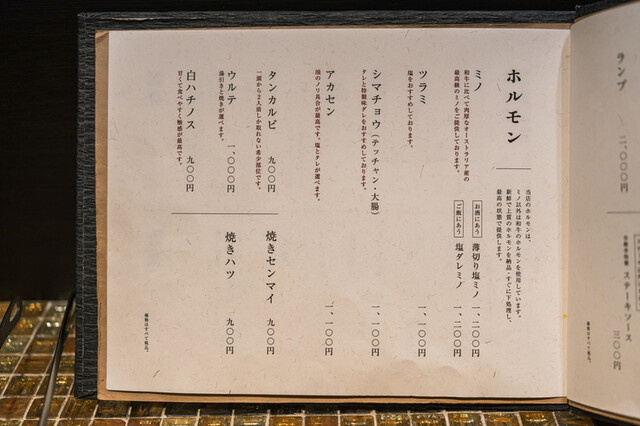 ホルモン
当店のホルモンは、
ミノ以外は和牛のホルモンを使用しています。
新鮮で上質のホルモンを納品・すぐに下処理し、
最高の状態で提供します。
ミノ
和牛に比べて肉厚なオーストラリア産の
最高級のミノをご提供しております。
お酒にあう 薄切り塩ミノ 一、二〇〇円
ご飯にあう 塩ダレミノ 一、二〇〇円
ツラミ 一、一〇〇円
塩をおすすめしております。
シマチョウ(テッチャン・大腸) 一、一〇〇円
タレと特製味ダレをおすすめしております。
アカセン 一、一〇〇円
油のノリ具合が最高です。塩とタレが選べます。
タンカルビ 九〇〇円
一頭から2人前しか取れない希少部位です。
ウルテ 一、〇〇〇円
湯引きと焼きが選べます。
白ハチノス 九〇〇円
甘くて食べやすく触感が最高です。
焼きセンマイ 九〇〇円
焼きハツ 九〇〇円
価格はすべて税込。
ランプ 二、〇〇〇円
ステーキソース 三〇〇円
価格はすべて税込。